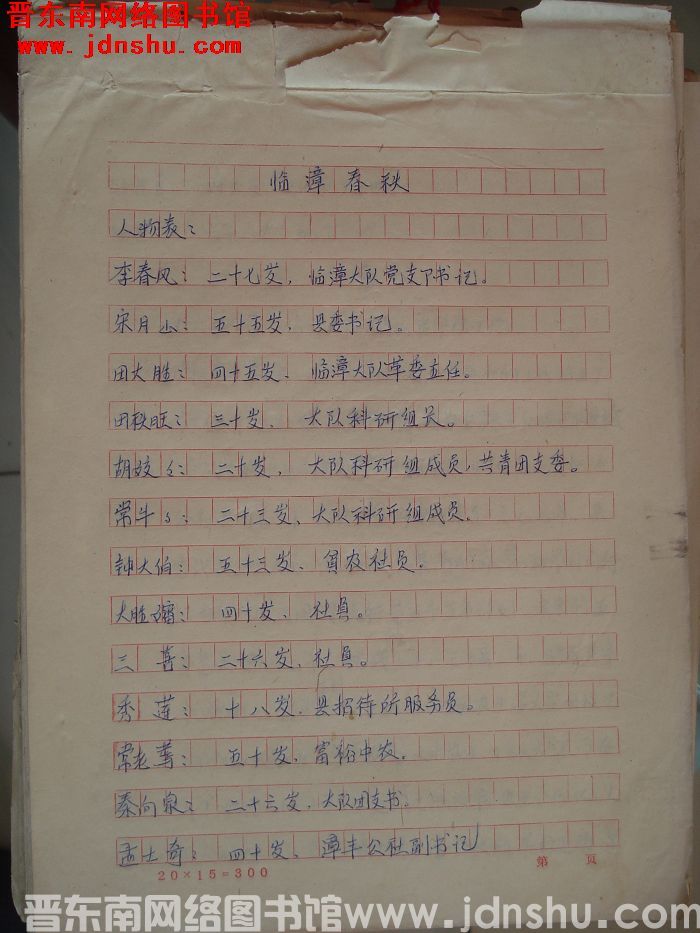 晋东南网络图书馆
www.jdnshu.com
临漳春秋
人物表：
李春风：二十七岁，临漳大队党支部书记。
宋月山：五十五岁，县委书记。
田大胜：四十五岁，临漳大队革委主任。
田秋旺：三十岁，大队科研组长。
胡姣々：二十岁，大队科研组成员，共青团支委。
常斗々：二十三岁，大队科研组成员。
钟大伯：五十三岁，贫农社员。
大胜婶：四十岁，社员。
三喜：二十六岁，社员。
秀莲：十八岁，县招待所服务员。
常老：五十岁，富裕中农。
秦向泉：二十六岁，大队团支书。
孟士奇：四十岁，漳丰公社副书记
20×15=300
第 页
晋东南网络图书馆www.jdnshu.com